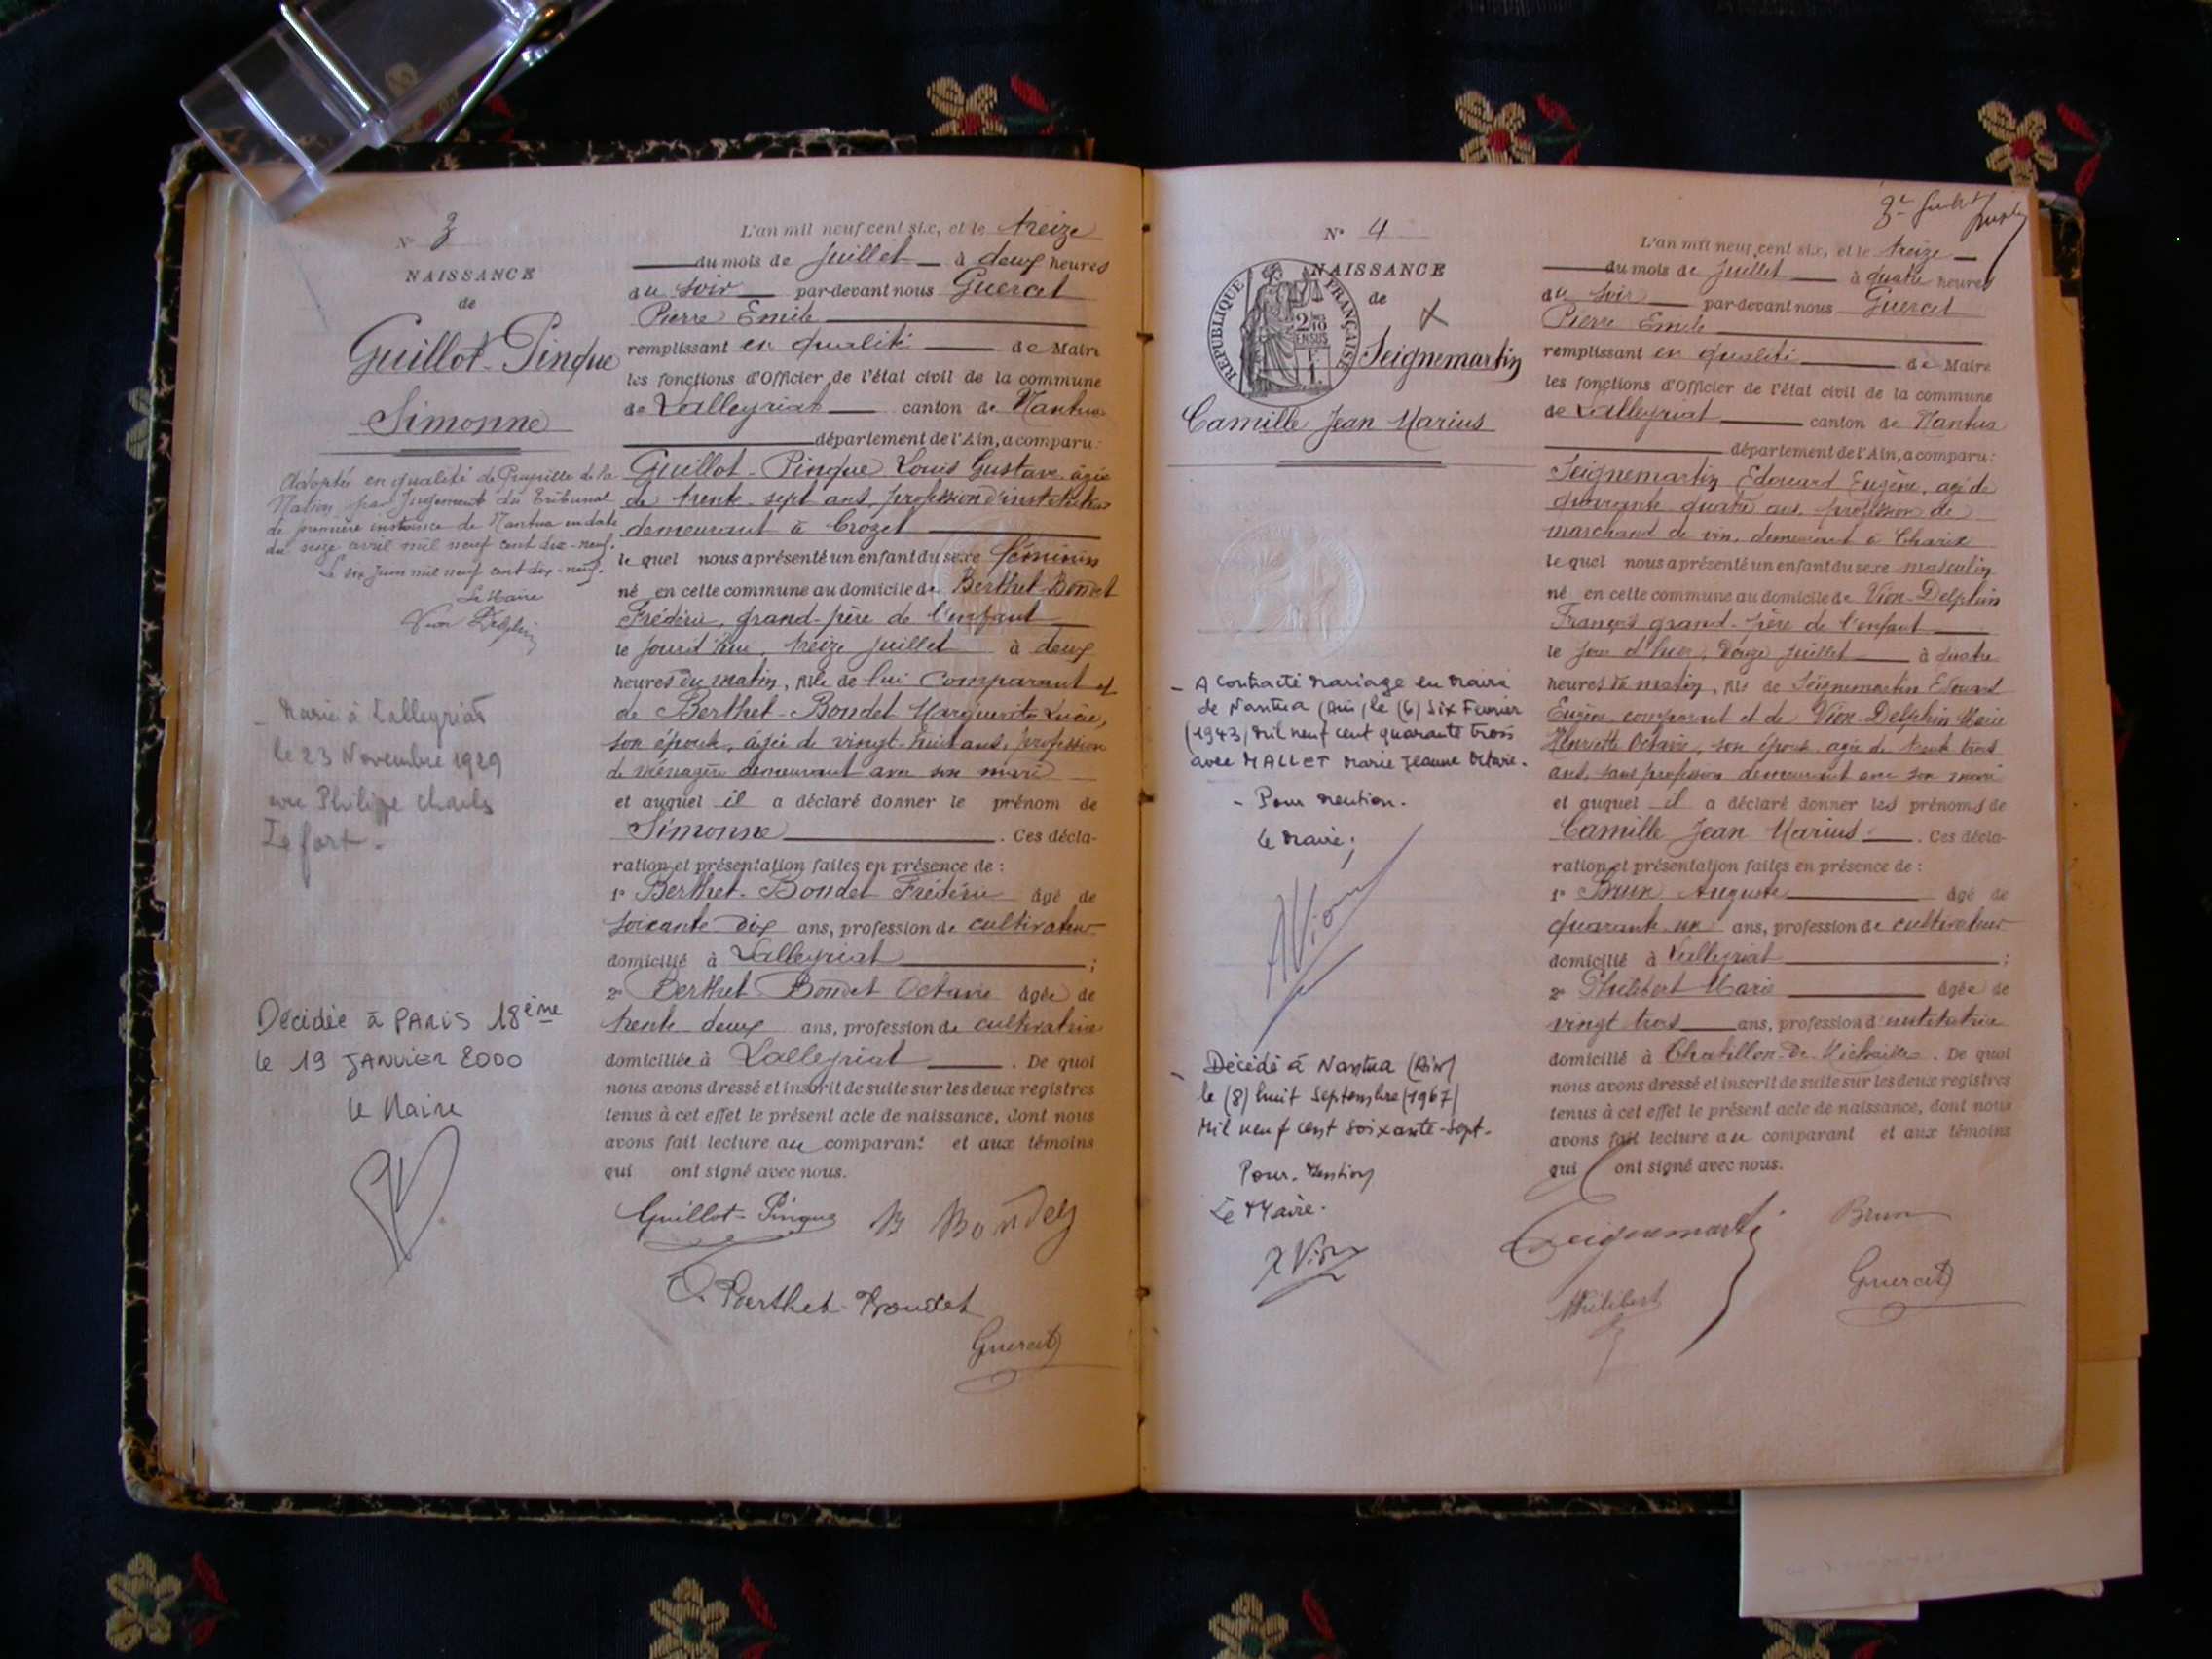 N° 3
NAISSANCE
de
Guillot-Pinque
Simonne
Adoptée en qualité de Pupille de la
Nation par Jugement du Tribunal
de première instance de Nantua en date
du seize avril mil neuf cent dix-neuf.
Le six Juin mil neuf cent dix-neuf.
Le Maire
Vion Delphin
Marié à Lalleyriat
le 23 Novembre 1929
avec Philippe Charles
Lefort.
Décédée à PARIS 18ème
le 19 JANVIER 2000
le Maire
L'an mil neuf cent six, et le treize
du mois de Juillet à deux heures
du soir par-devant nous Guercet
Pierre Emile
remplissant en qualité de Maire
les fonctions d'Officier de l'état civil de la commune
de Lalleyriat canton de Nantua
département de l'Ain, a comparu:
Guillot-Pinque Louis Gustave, âgé
de trente-sept ans, profession d'instituteur
demeurant à Crozet
le quel nous a présenté un enfant du sexe féminin
né en cette commune au domicile de Berthet-Bondet
Frédéric, grand-père de l'enfant
le jourd'hui, treize Juillet à deux
heures du matin, fille de lui comparant et
de Berthet-Bondet Marguerite Lucie,
son épouse, âgée de vingt-huit ans, profession
de ménagère demeurant avec son mari
et auquel il a déclaré donner le prénom de
Simonne. Ces décla-
ration et présentation faites en présence de:
1° Berthet-Bondet Frédéric âgé de
soixante-dix ans, profession de cultivateur
domicilié à Lalleyriat;
2° Berthet-Bondet Octavie âgée de
trente deux ans, profession de cultivatrice
domiciliée à Lalleyriat. De quoi
nous avons dressé et inscrit de suite sur les deux registres
tenus à cet effet le présent acte de naissance, dont nous
avons fait lecture au comparant et aux témoins
qui ont signé avec nous.
Guillot-Pinque B Bondet
O. Berthet-Bondet
Guercet
N° 4
NAISSANCE
de
RÉPUBLIQUE FRANÇAISE
2/10
EN SUS
F.
1.
Seignemartin
Camille Jean Marius
- A contracté mariage en mairie
de Nantua (Ain) le (6) Six Février
(1943) mil neuf cent quarante trois
avec MALLET Marie Jeanne Octavie.
- Pour mention.
le Maire;
AVion
- Décédé à Nantua (Ain)
le (8) huit Septembre (1967)
Mil neuf cent soixante-sept.
Pour mention
Le Maire.
AVion
L'an mil neuf cent six, et le treize
du mois de Juillet à quatre heures
du soir par-devant nous Guercet
Pierre Emile
remplissant en qualité de Maire
les fonctions d'Officier de l'état civil de la commune
de Lalleyriat canton de Nantua
département de l'Ain, a comparu:
Seignemartin Edouard Eugène, agé de
quarante quatre ans, profession de
marchand de vin, demeurant à Charix
le quel nous a présenté un enfant du sexe masculin
né en cette commune au domicile de Vion-Delphin
François grand-père de l'enfant
le jour d'hier, douze Juillet à quatre
heures du matin, fils de Seignemartin Edouard
Eugène comparant et de Vion-Delphin Marie
Henriette Octavie, son épouse agée de trente trois
ans, sans profession demeurant avec son mari
et auquel il a déclaré donner les prénoms de
Camille Jean Marius. Ces décla-
ration et présentation faites en présence de:
1° Brun Auguste âgé de
quarante un ans, profession de cultivateur
domicilié à Lalleyriat;
2° Philibert Marie âgée de
vingt trois ans, profession d'institutrice
domicilié à Chatillon-de-Michaille. De quoi
nous avons dressé et inscrit de suite sur les deux registres
tenus à cet effet le présent acte de naissance, dont nous
avons fait lecture au comparant et aux témoins
qui ont signé avec nous.
Seignemartin Brun
Philibert Guercet